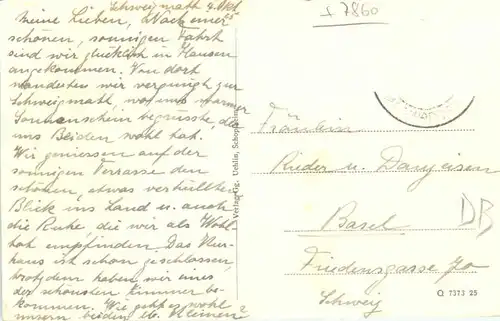 Schweigmatt 4. Okt.
25
Meine Lieben, Nach einer
schönen, sonnigen Fahrt
sind wir glücklich in Hausen
angekommen. Von dort
wanderten wir vergnügt zur
Schweigmatt, wo uns warmer
Sonnenschein begrüsste, der
uns Beiden wohl tat.
Wir geniessen auf der
sonnigen Terrasse den
schönen, etwas verhüllten
Blick ins Land u. auch
die Ruhe, die wir als Wohl-
tat empfinden. Das Kur-
haus ist schon geschlossen,
trotzdem haben wir eines
der schönsten Zimmer be-
kommen. Wie geht es wohl
unsern beiden lb. Kleinen?
Verlag Gg. Uehlin, Schopfheim
7860
Fräulein
Rieder u. Danzeisen
Basel
Friedensgasse 70
Schweiz
DB
Q 7373 25